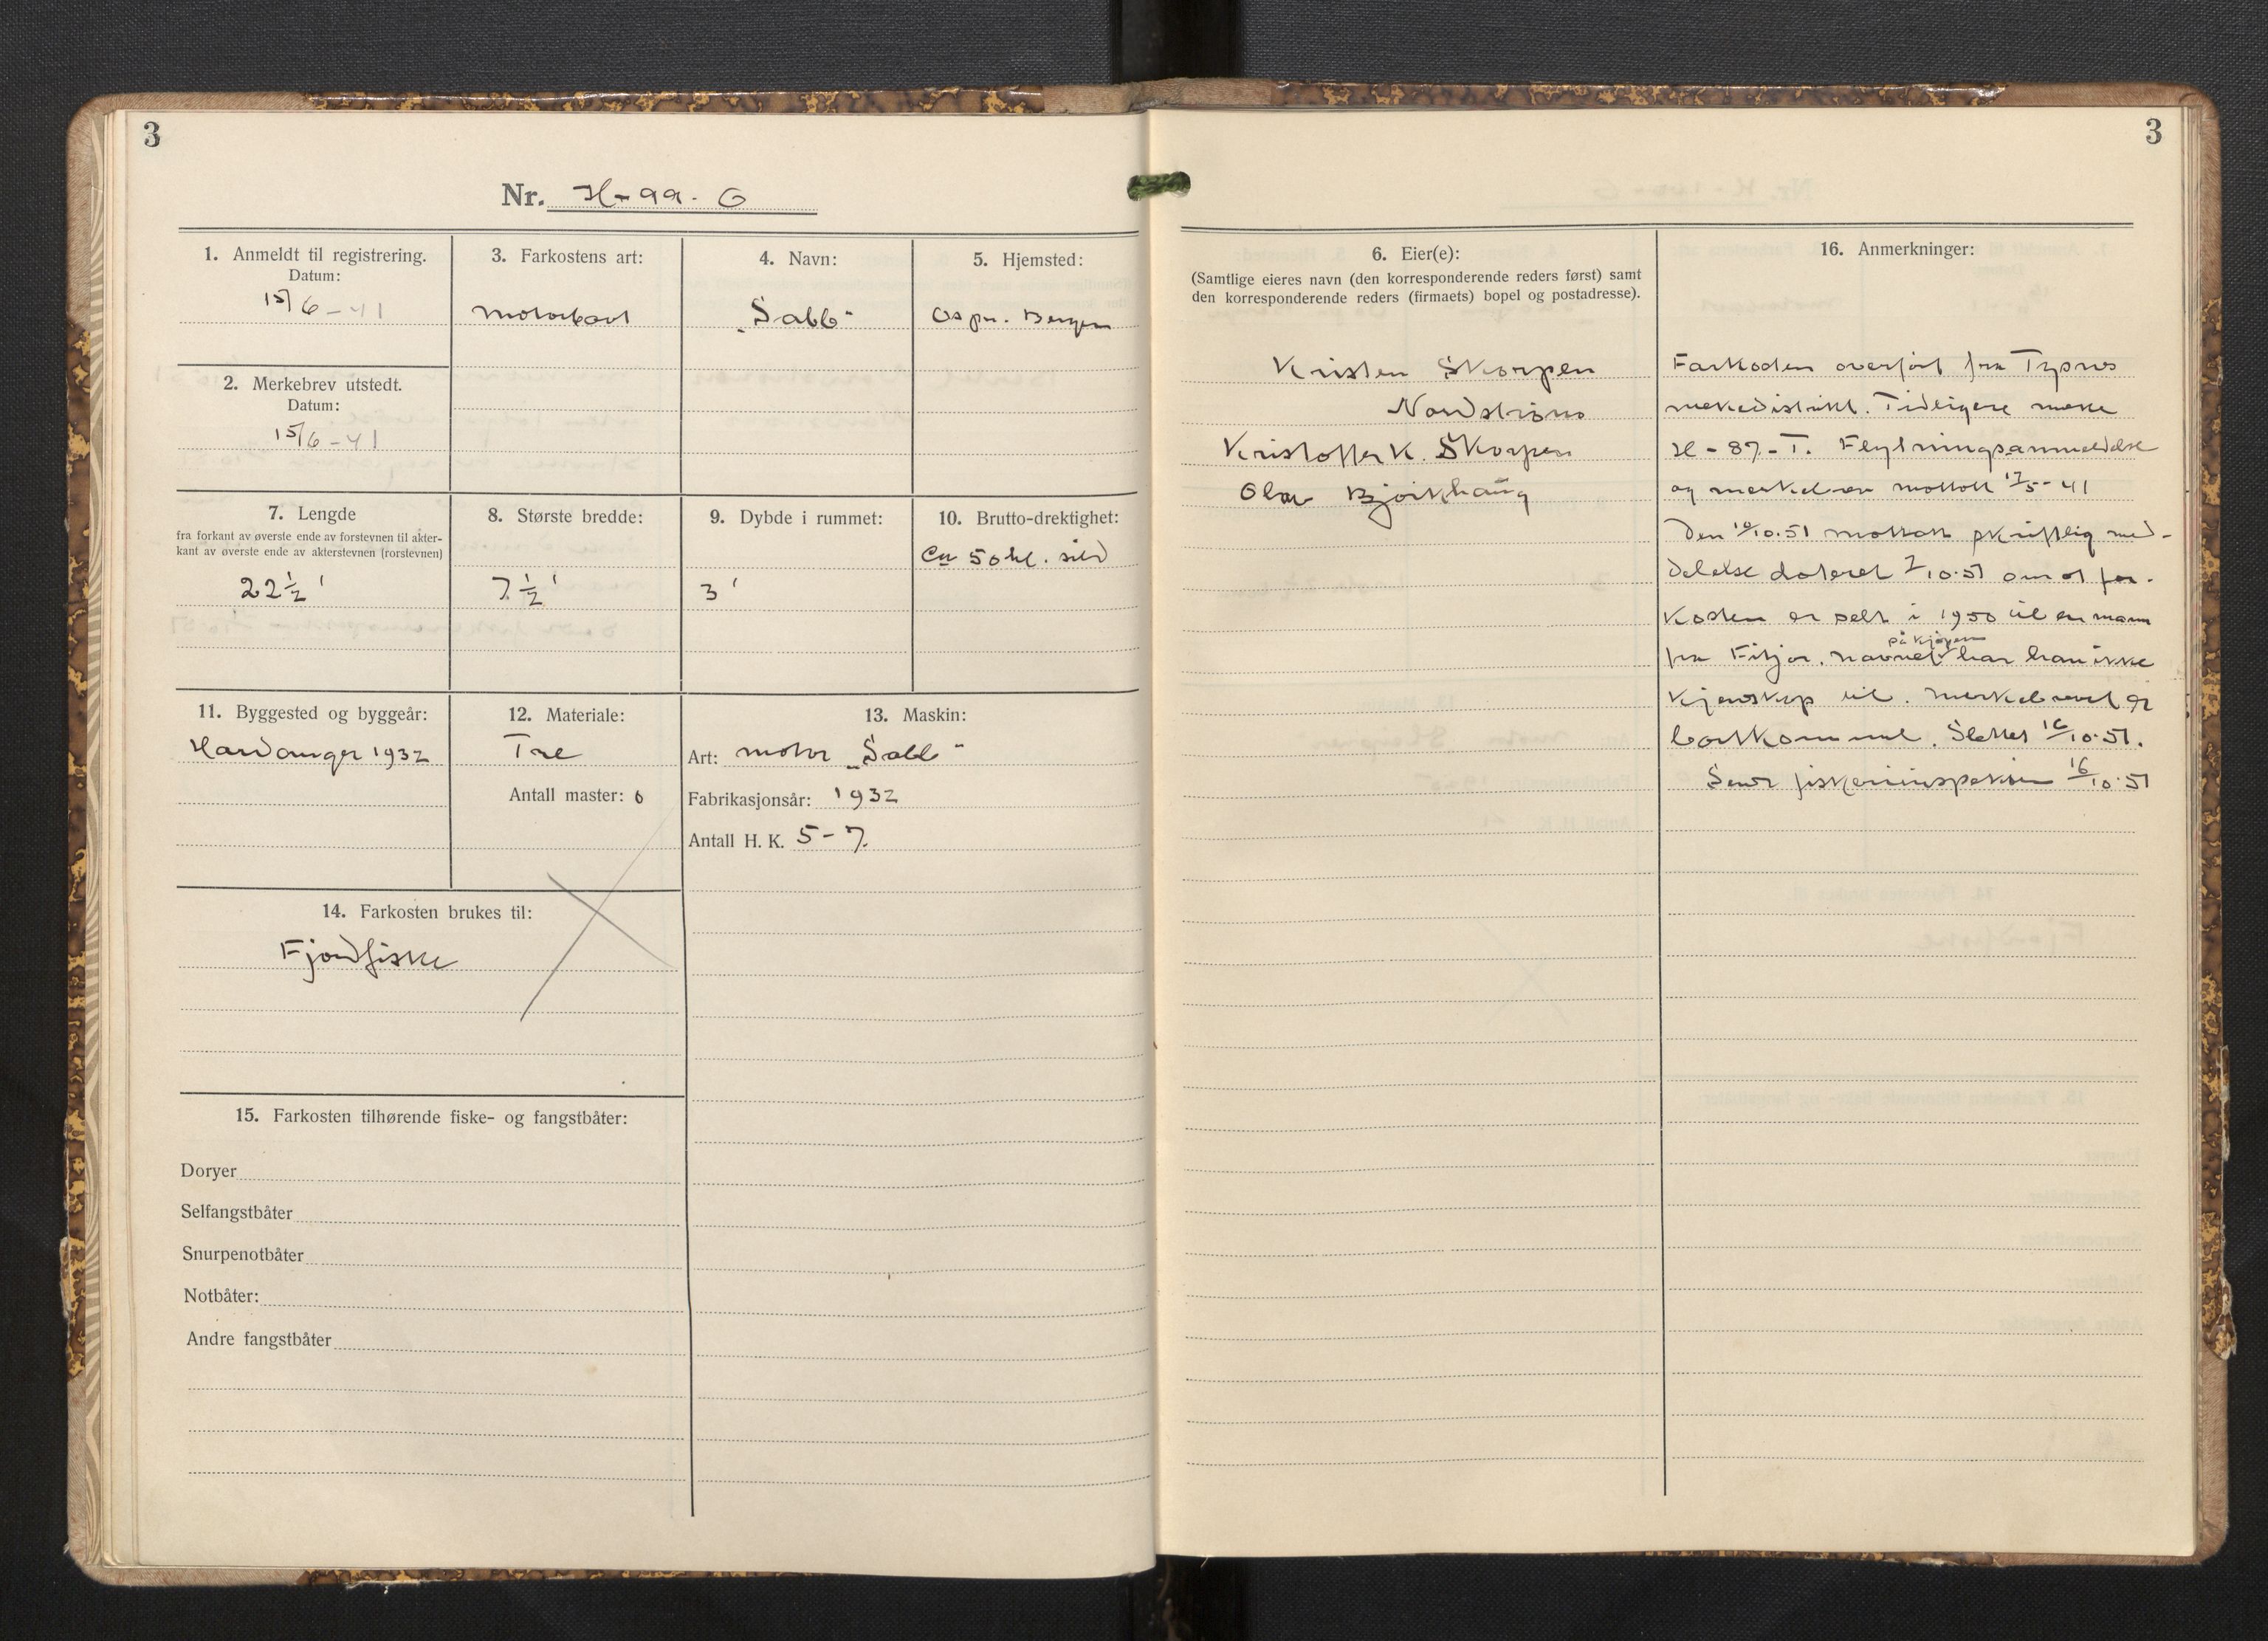 3
Nr. H-99-O
1. Anmeldt til registrering.
Datum:
15/6-41
2. Merkebrev utstedt.
Datum:
15/6-41
3. Farkostens art:
motorbaat
4. Navn:
"Sabb"
5. Hjemsted:
Os pr. Bergen
7. Lengde
fra forkant av øverste ende av forstevnen til akter-
kant av øverste ende av akterstevnen (rorstevnen)
22 1/2'
8. Største bredde:
7 1/2'
9. Dybde i rummet:
3'
10. Brutto-drektighet:
Ca 50 hl. sild
11. Byggested og byggeår:
Hardanger 1932
12. Materiale:
Tre
Antall master: 0
13. Maskin:
Art: motor "Sabb"
Fabrikasjonsår: 1932
Antall H. K. 5-7.
14. Farkosten brukes til:
Fjordfiske
15. Farkosten tilhørende fiske- og fangstbåter:
Doryer
Selfangstbåter
Snurpenotbåter
Notbåter:
Andre fangstbåter
3
6. Eier(e):
(Samtlige eieres navn (den korresponderende reders først) samt
den korresponderende reders (firmaets) bopel og postadresse).
Kristen Skorpen
Nordstrøno
Kristoffer K. Skorpen
Olav Bjørkhaug
16. Anmerkninger:
Farkosten overført fra Tysnes
merkedistrikt. Tidligere merke
H-87-T. Flytningsanmeldelse
og merkebrev mottatt 17/5-41
Den 10/10.51 mottatt skriftlig med-
delelse dateret 7/10.51 om at far-
kosten er selt i 1950 til en mann
fra Fitjar. navnet på kjøperen har han ikke
kjenskap til. merkebrevet er
bortkommet. Slettet 16/10.51.
Sendt fiskeriinspektøren 16/10.51